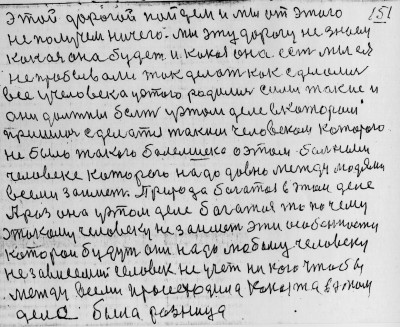 этой дорогой пойдем и мы от этого 151
не получим ничего. мы эту дорогу не знаем
какая она будет и какая она есть мы ея
не пробывали так делат как сделалис
все у человека у этого родилис силы такие и
они должны быт в этом деле в котором
пришлос сделатся таким человеком которого
не было такого болеющего о этом больном
человеке которого надо давно между людями
всеми занимет Природа богатая в этом деле
А раз она в этом деле богатая то почему
этому человеку не занимет эти особенности
которои будут они надо любому человеку
независемой человек не учет ни кого чтобы
между всеми происходила какаята в этом
деле была разница